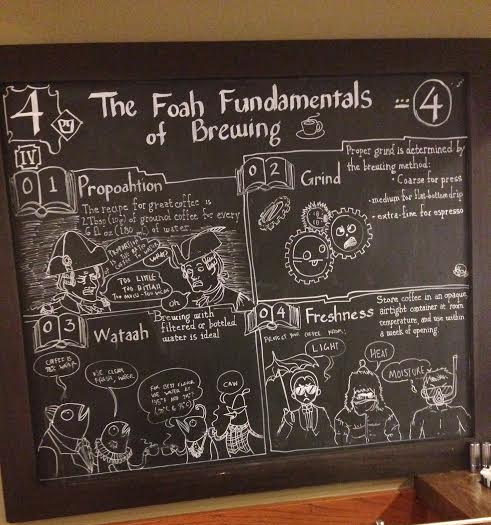 4
pg
IV
The Foah Fundamentals
of Brewing
4
01
Propoahtion
The recipe for great coffee is
2 Tbsp (10g) of ground coffee for every
6 fl oz (180 mL) of water.
Too Little
Too Bitter
Too Much - Too Weak
Oh
02
Grind
Proper grind is determined by
the brewing method:
• Coarse for press
- medium for flat-bottom drip
- extra-fine for espresso
03
Wataah
Brewing with
filtered or bottled
water is ideal
Coffee is
98% Water
Use clean
Fresh, Water
For best flavor
use water at
CAW
04
Freshness
Store coffee in an opaque,
airtight container at room
temperature, and use within
a week of opening.
Protect your coffee from:
Light
Heat
Moisture